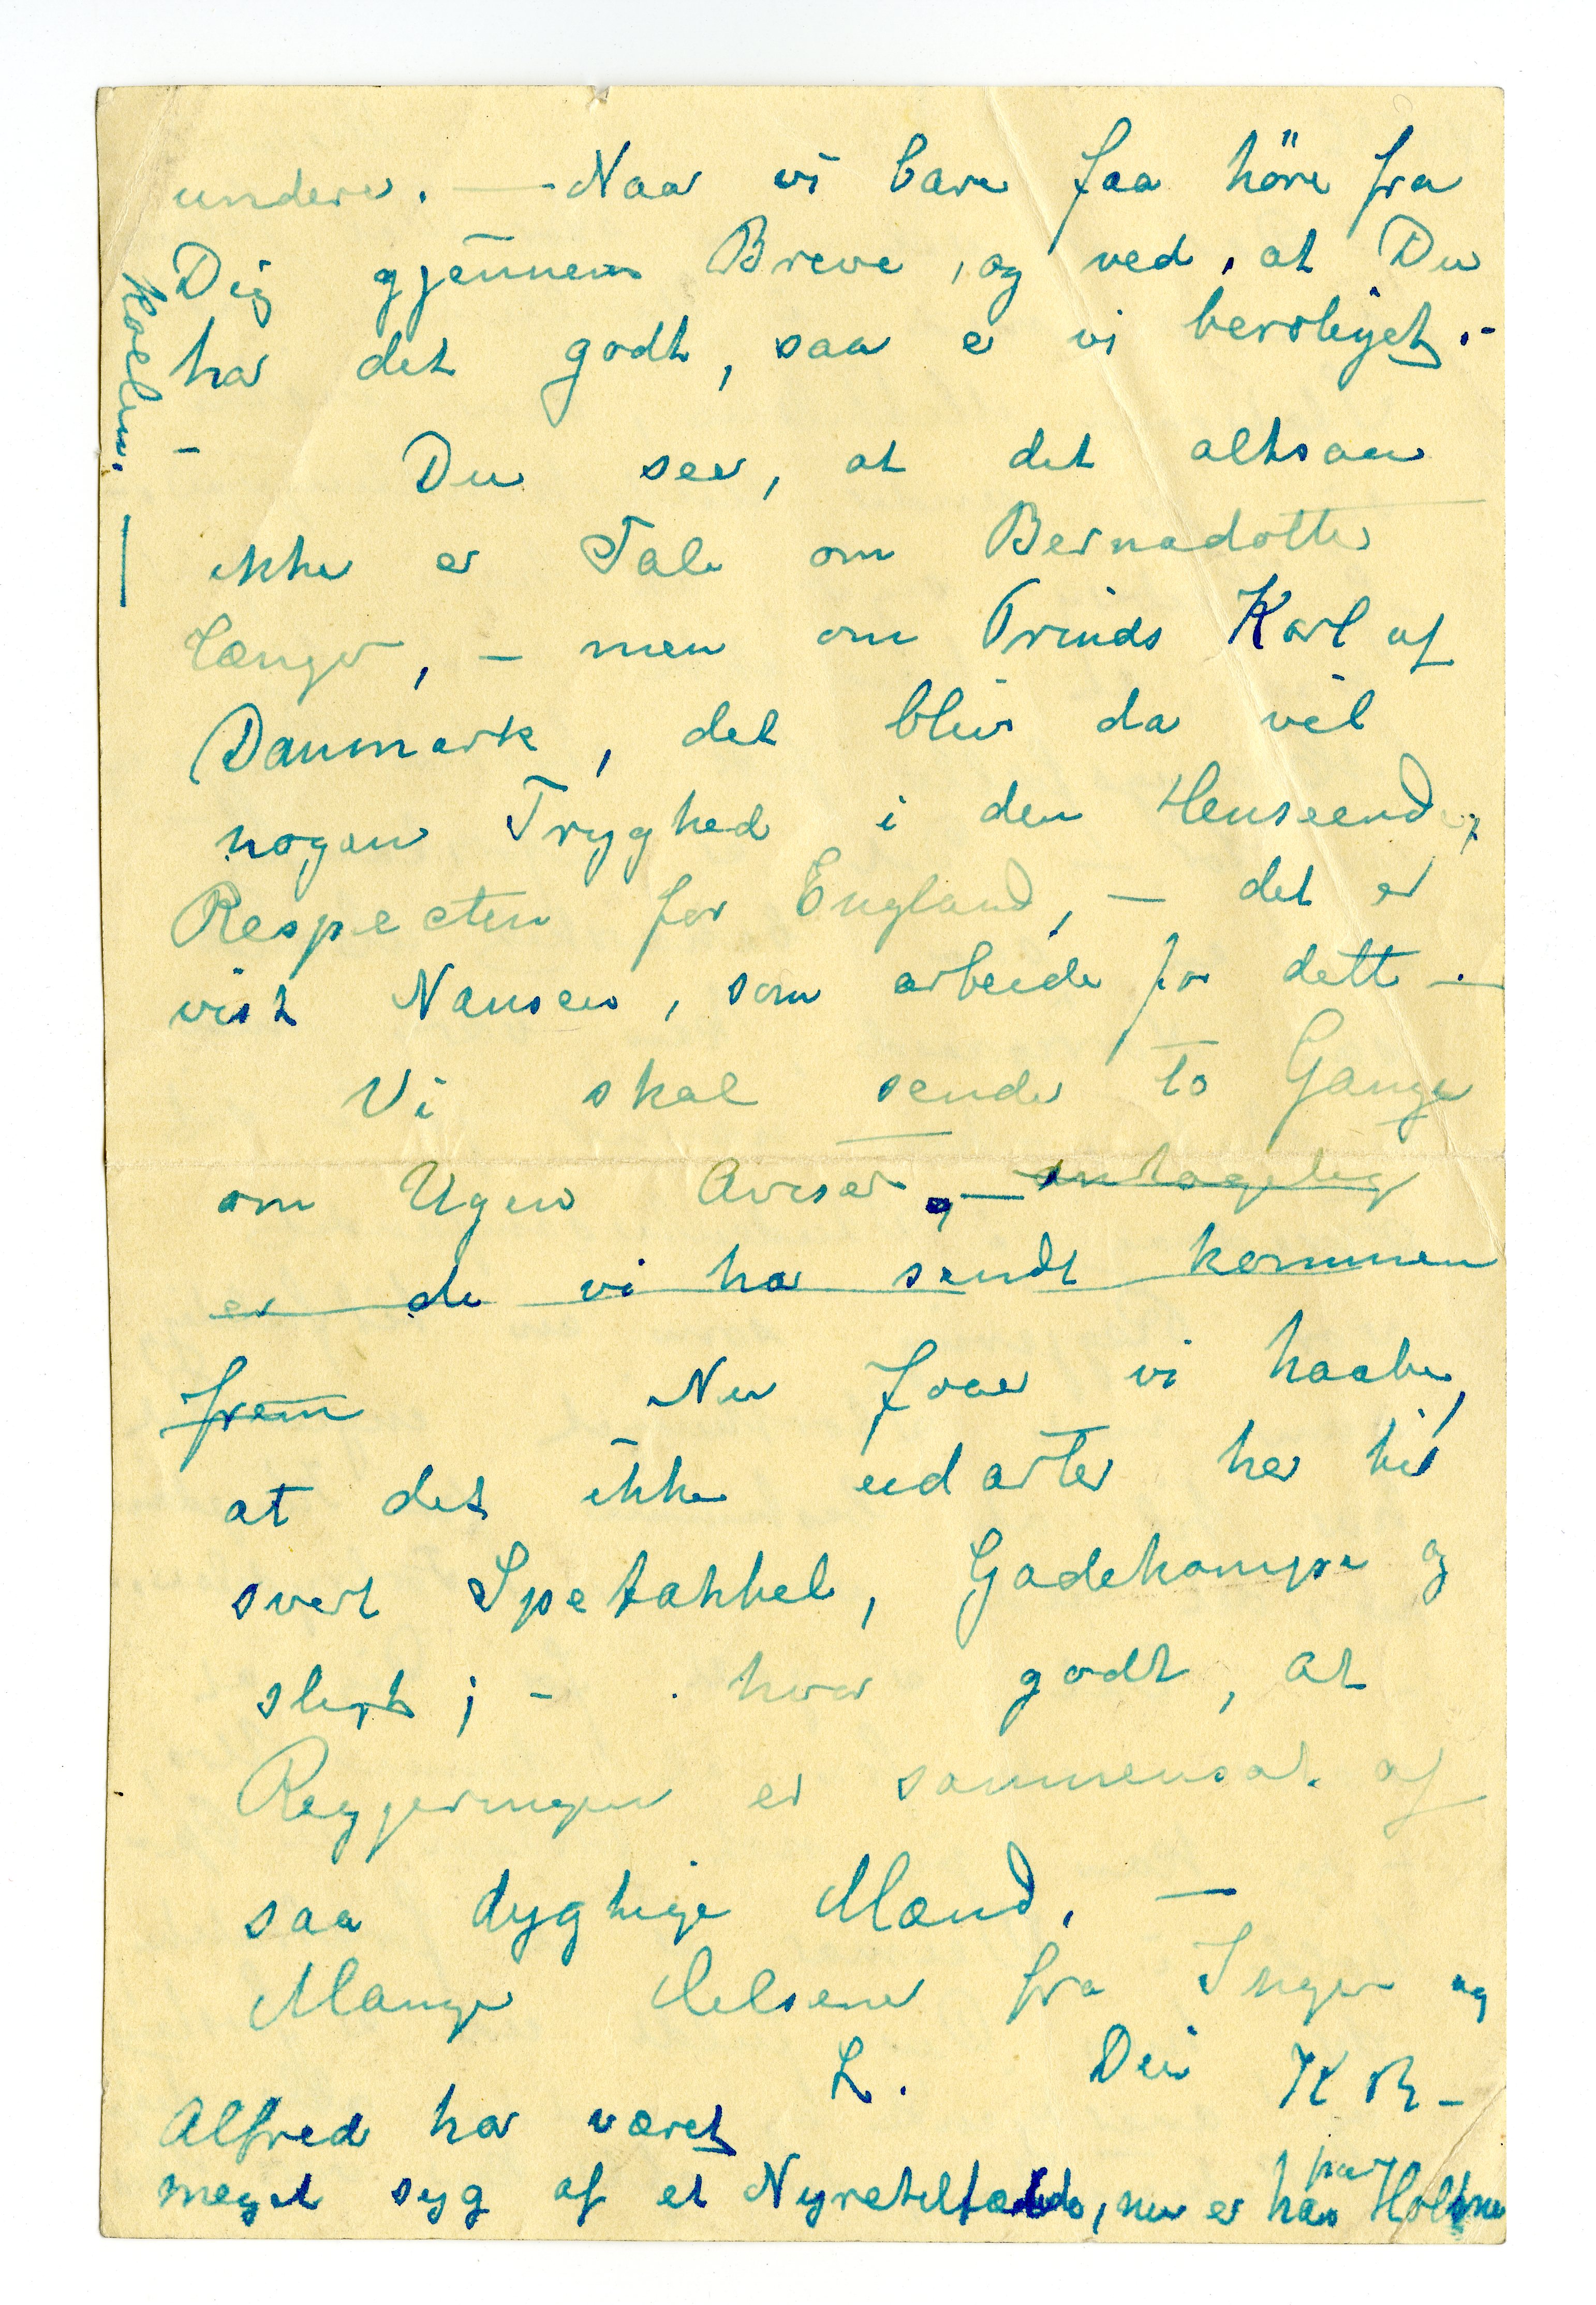 undere. — Naar vi bare faa höre fra
Dig gjennem Breve, og ved, at Du
har det godt, saa er vi beroliget. -
- Du seer, at det altsaa
ikke er Tale om Bernadotte
længer, - men om Prinds Karl af
Danmark, det blir da vel
nogen Tryghed i den Henseende,
Respecten for England, — det er
vist Nansen, som arbeider for dette. —
Vi skal sende to Gange
om Ugen Aviser, — antagelig
er de vi har sendt kommen
frem Nu faar vi haabe,
at det ikke udarter her til
svert Spetakkel, Gadekampe og
sligt; - hvor godt, at
Regjeringen er sammensat af
saa dygtige Mænd. —
Mange Helsener fra Inger og
L. Din KB -
Alfred har været
meget syg af et Nyretilfælde, nu er han paa Holmen